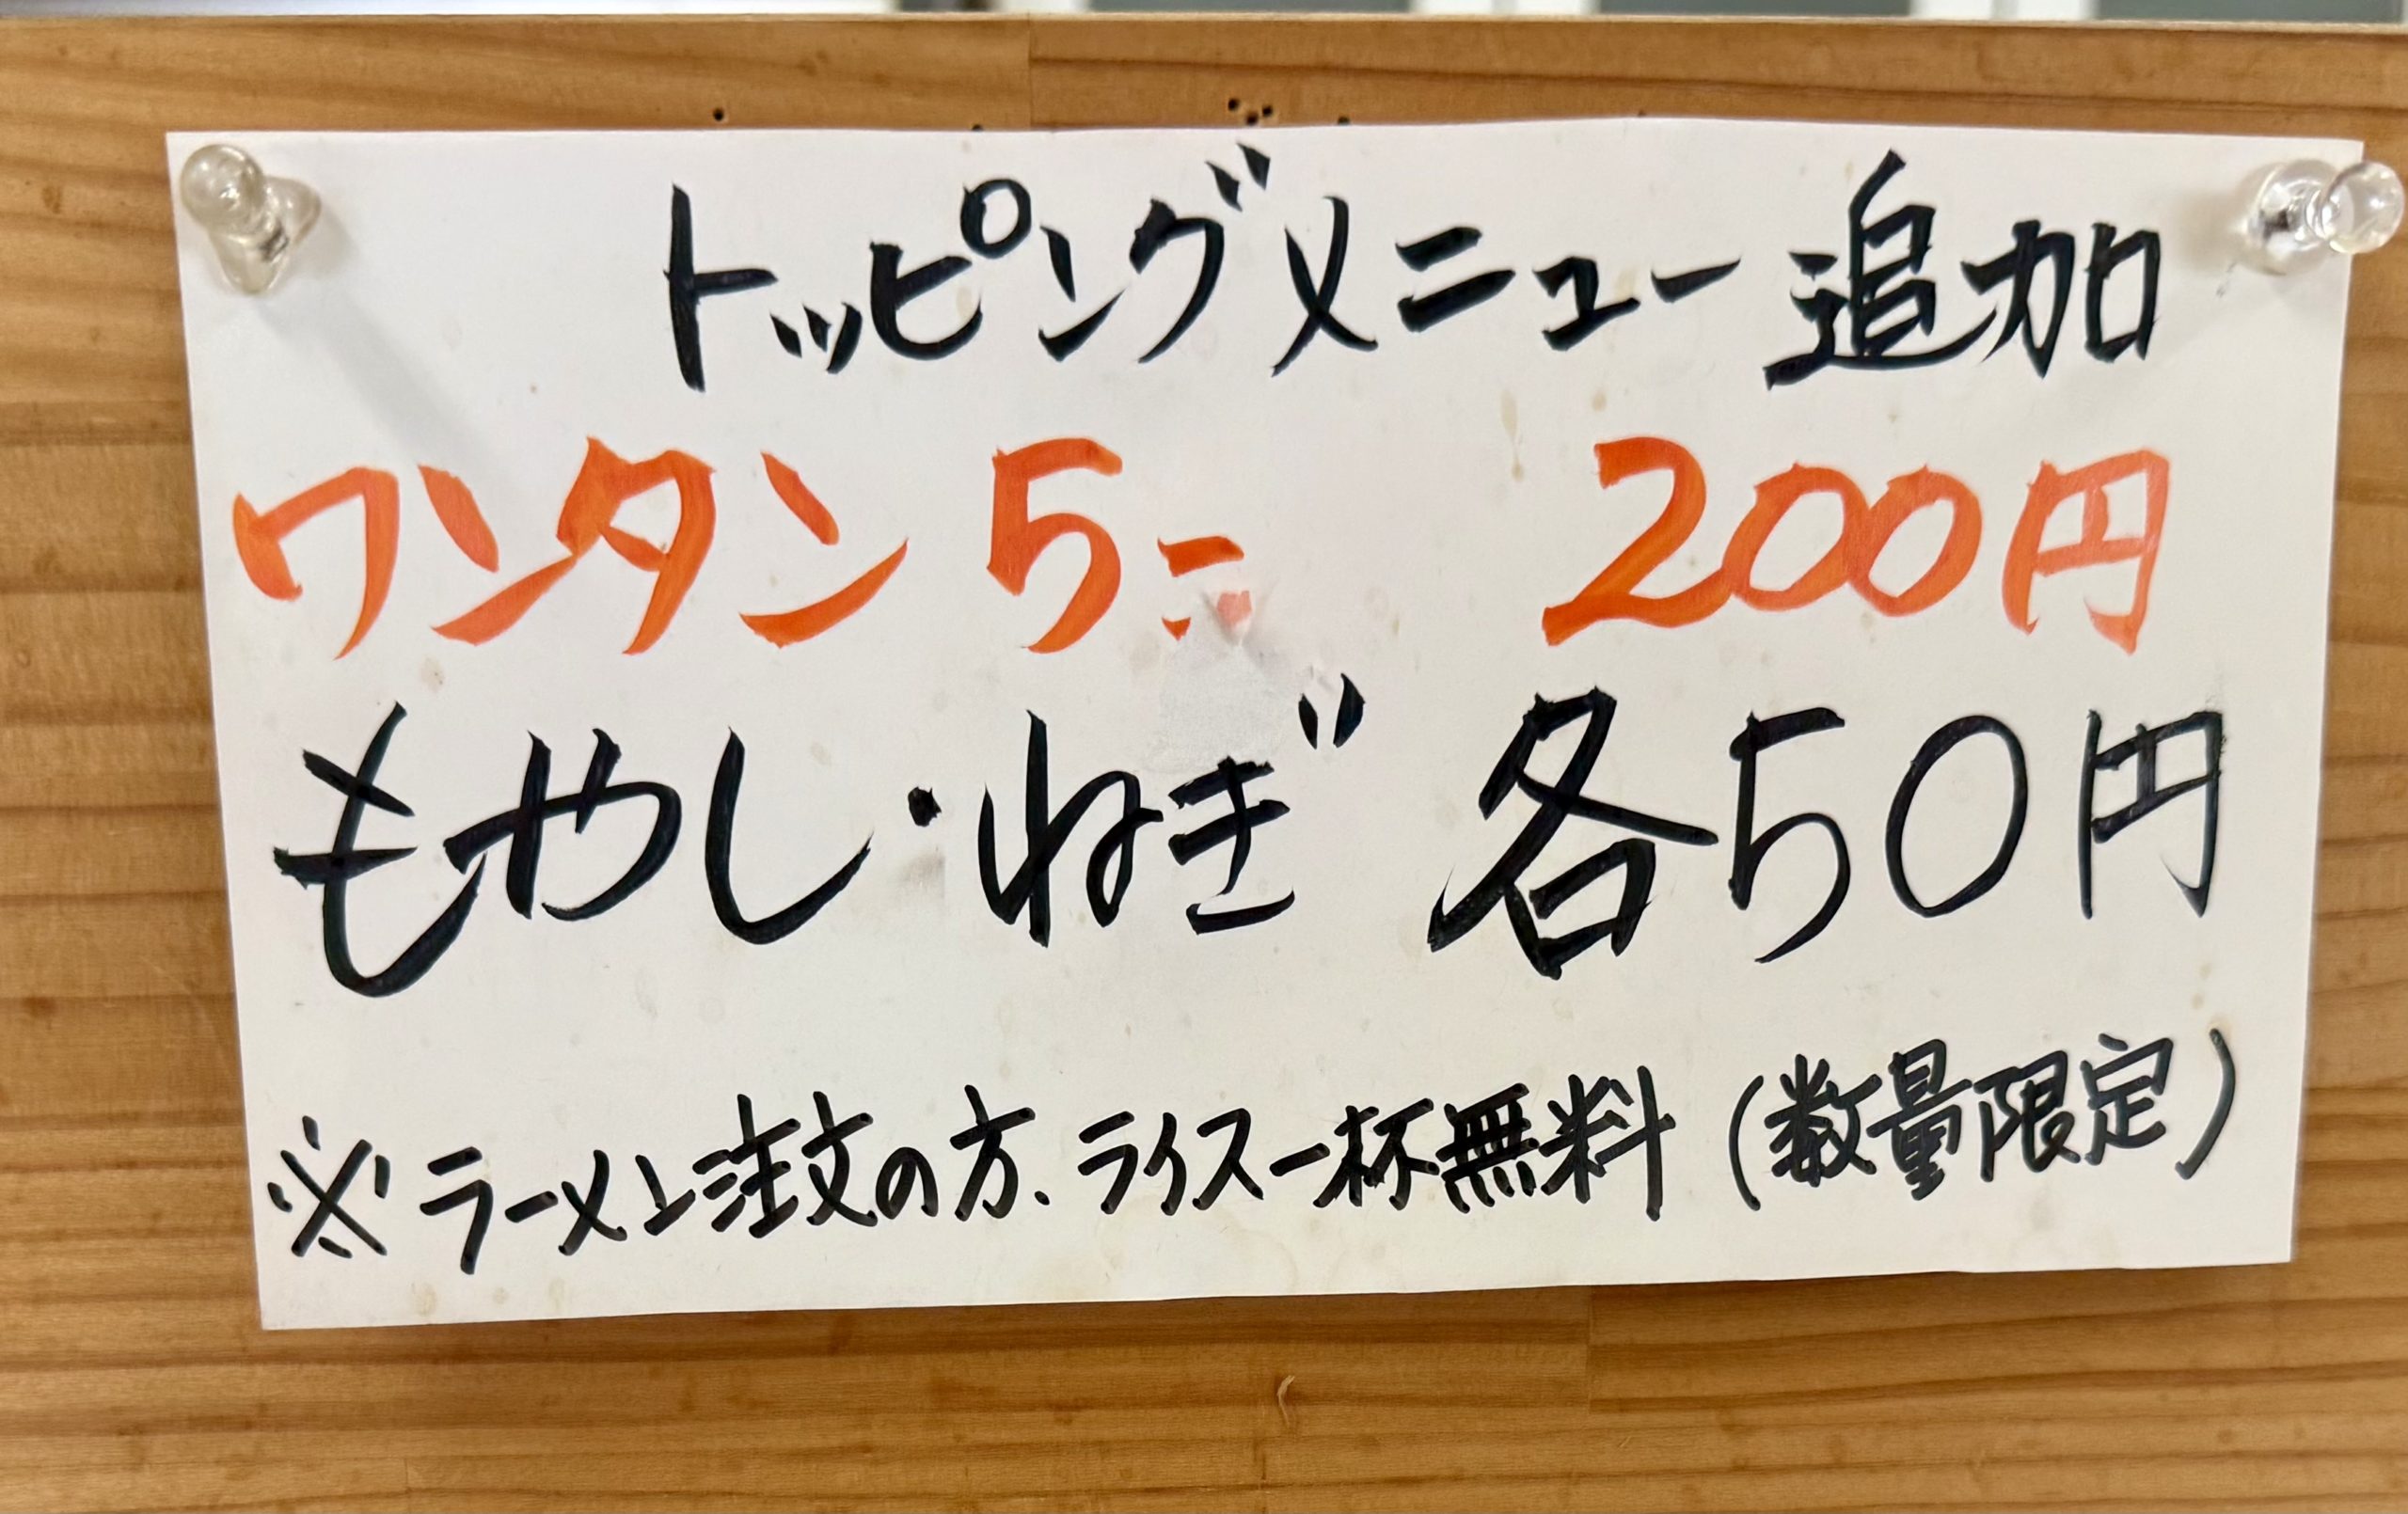 トッピングメニュー追加
ワンタン5コ 200円
もやし・ねぎ 各50円
※ラーメン注文の方、ライス一杯無料(数量限定)